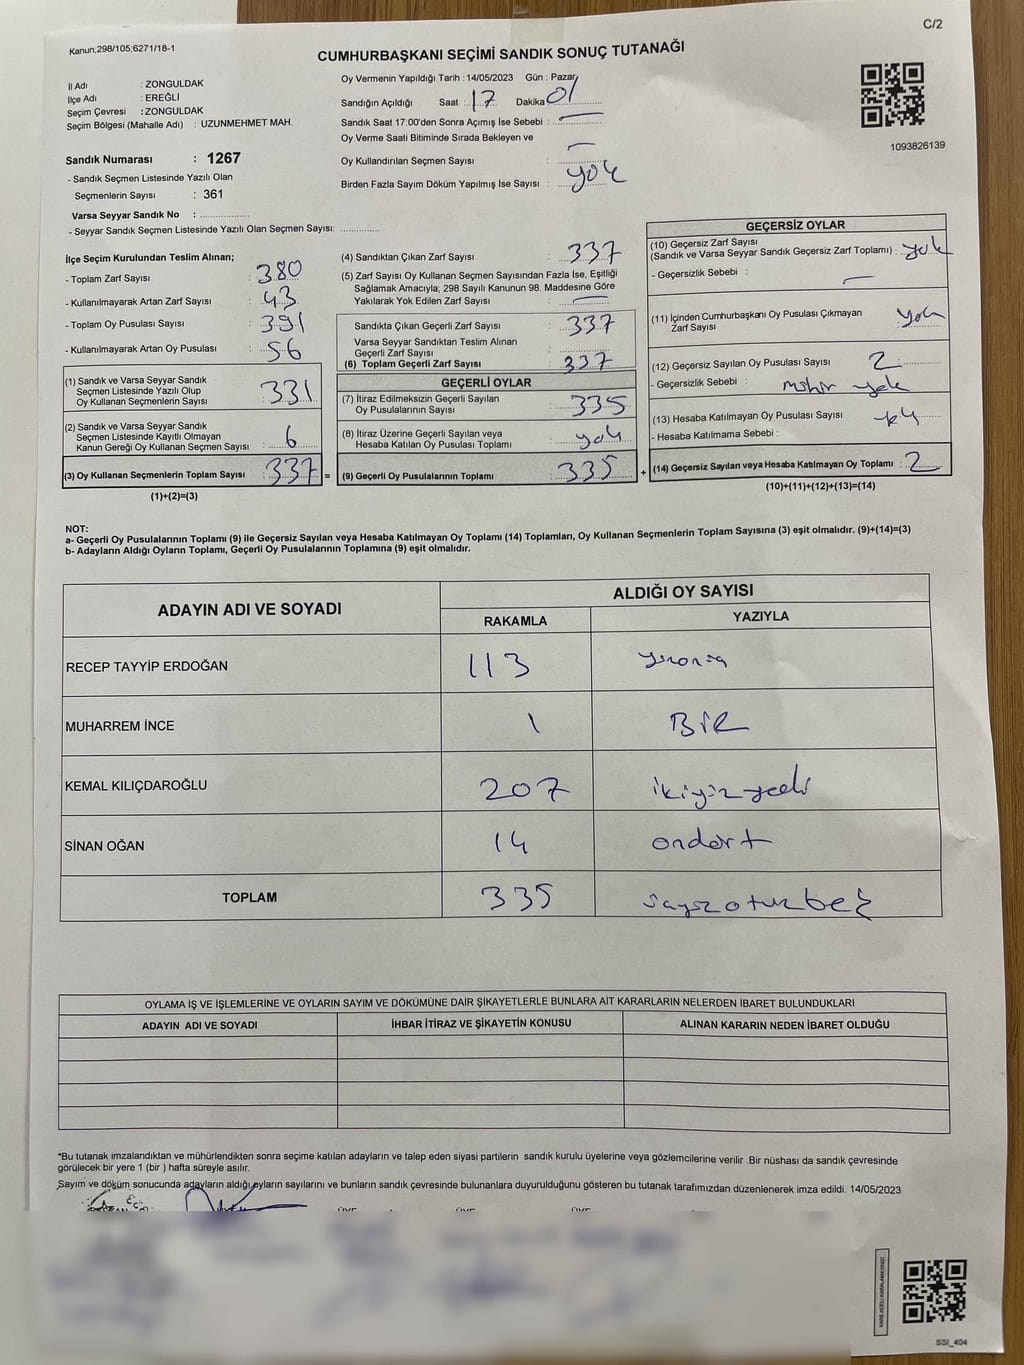 C/2
Kanun;298/105;6271/18-1
CUMHURBAŞKANI SEÇİMİ SANDIK SONUÇ TUTANAĞI
İl Adı : ZONGULDAK
İlçe Adı : EREĞLİ
Seçim Çevresi : ZONGULDAK
Seçim Bölgesi (Mahalle Adı) : UZUNMEHMET MAH.
Oy Vermenin Yapıldığı Tarih : 14/05/2023 Gün : Pazar
Sandığın Açıldığı Saat : 17 Dakika 01
Sandık Saat 17:00'den Sonra Açımış İse Sebebi : —
Oy Verme Saati Bitiminde Sırada Bekleyen ve
Oy Kullandırılan Seçmen Sayısı : —
Birden Fazla Sayım Döküm Yapılmış İse Sayısı : yok
1093826139
Sandık Numarası : 1267
- Sandık Seçmen Listesinde Yazılı Olan
Seçmenlerin Sayısı : 361
Varsa Seyyar Sandık No : ................
- Seyyar Sandık Seçmen Listesinde Yazılı Olan Seçmen Sayısı: .............
İlçe Seçim Kurulundan Teslim Alınan;
- Toplam Zarf Sayısı : 380
- Kullanılmayarak Artan Zarf Sayısı : 43
- Toplam Oy Pusulası Sayısı : 391
- Kullanılmayarak Artan Oy Pusulası : 56
(1) Sandık ve Varsa Seyyar Sandık
Seçmen Listesinde Yazılı Olup
Oy Kullanan Seçmenlerin Sayısı : 331
(2) Sandık ve Varsa Seyyar Sandık
Seçmen Listesinde Kayıtlı Olmayan
Kanun Gereği Oy Kullanan Seçmen Sayısı : 6
(3) Oy Kullanan Seçmenlerin Toplam Sayısı : 337 =
(1)+(2)=(3)
(4) Sandıktan Çıkan Zarf Sayısı : 337
(5) Zarf Sayısı Oy Kullanan Seçmen Sayısından Fazla İse, Eşitliği
Sağlamak Amacıyla; 298 Sayılı Kanunun 98. Maddesine Göre
Yakılarak Yok Edilen Zarf Sayısı : —
Sandıkta Çıkan Geçerli Zarf Sayısı : 337
Varsa Seyyar Sandıktan Teslim Alınan
Geçerli Zarf Sayısı :
(6) Toplam Geçerli Zarf Sayısı : 337
GEÇERLİ OYLAR
(7) İtiraz Edilmeksizin Geçerli Sayılan
Oy Pusulalarının Sayısı : 335
(8) İtiraz Üzerine Geçerli Sayılan veya
Hesaba Katılan Oy Pusulası Toplamı : yok
(9) Geçerli Oy Pusulalarının Toplamı : 335 +
GEÇERSİZ OYLAR
(10) Geçersiz Zarf Sayısı
(Sandık ve Varsa Seyyar Sandık Geçersiz Zarf Toplamı) : yok
- Geçersizlik Sebebi : —
(11) İçinden Cumhurbaşkanı Oy Pusulası Çıkmayan
Zarf Sayısı : yok
(12) Geçersiz Sayılan Oy Pusulası Sayısı : 2
- Geçersizlik Sebebi : Mühür yok
(13) Hesaba Katılmayan Oy Pusulası Sayısı :
- Hesaba Katılmama Sebebi :
(14) Geçersiz Sayılan veya Hesaba Katılmayan Oy Toplamı : 2
(10)+(11)+(12)+(13)=(14)
NOT:
a- Geçerli Oy Pusulalarının Toplamı (9) ile Geçersiz Sayılan veya Hesaba Katılmayan Oy Toplamı (14) Toplamları, Oy Kullanan Seçmenlerin Toplam Sayısına (3) eşit olmalıdır. (9)+(14)=(3)
b- Adayların Aldığı Oyların Toplamı, Geçerli Oy Pusulalarının Toplamına (9) eşit olmalıdır.
ADAYIN ADI VE SOYADI ALDIĞI OY SAYISI
RAKAMLA YAZIYLA
RECEP TAYYİP ERDOĞAN 113
MUHARREM İNCE 1 BİR
KEMAL KILIÇDAROĞLU 207 ikiyüzyedi
SİNAN OĞAN 14 ondört
TOPLAM 335
OYLAMA İŞ VE İŞLEMLERİNE VE OYLARIN SAYIM VE DÖKÜMÜNE DAİR ŞİKAYETLERLE BUNLARA AİT KARARLARIN NELERDEN İBARET BULUNDUKLARI
ADAYIN ADI VE SOYADI İHBAR İTİRAZ VE ŞİKAYETİN KONUSU ALINAN KARARIN NEDEN İBARET OLDUĞU
*Bu tutanak imzalandıktan ve mühürlendikten sonra seçime katılan adayların ve talep eden siyasi partilerin sandık kurulu üyelerine veya gözlemcilerine verilir .Bir nüshası da sandık çevresinde
görülecek bir yere 1 (bir ) hafta süreyle asılır.
Sayım ve döküm sonucunda adayların aldığı oyların sayılarını ve bunların sandık çevresinde bulunanlara duyurulduğunu gösteren bu tutanak tarafımızdan düzenlenerek imza edildi. 14/05/2023
SSI_404